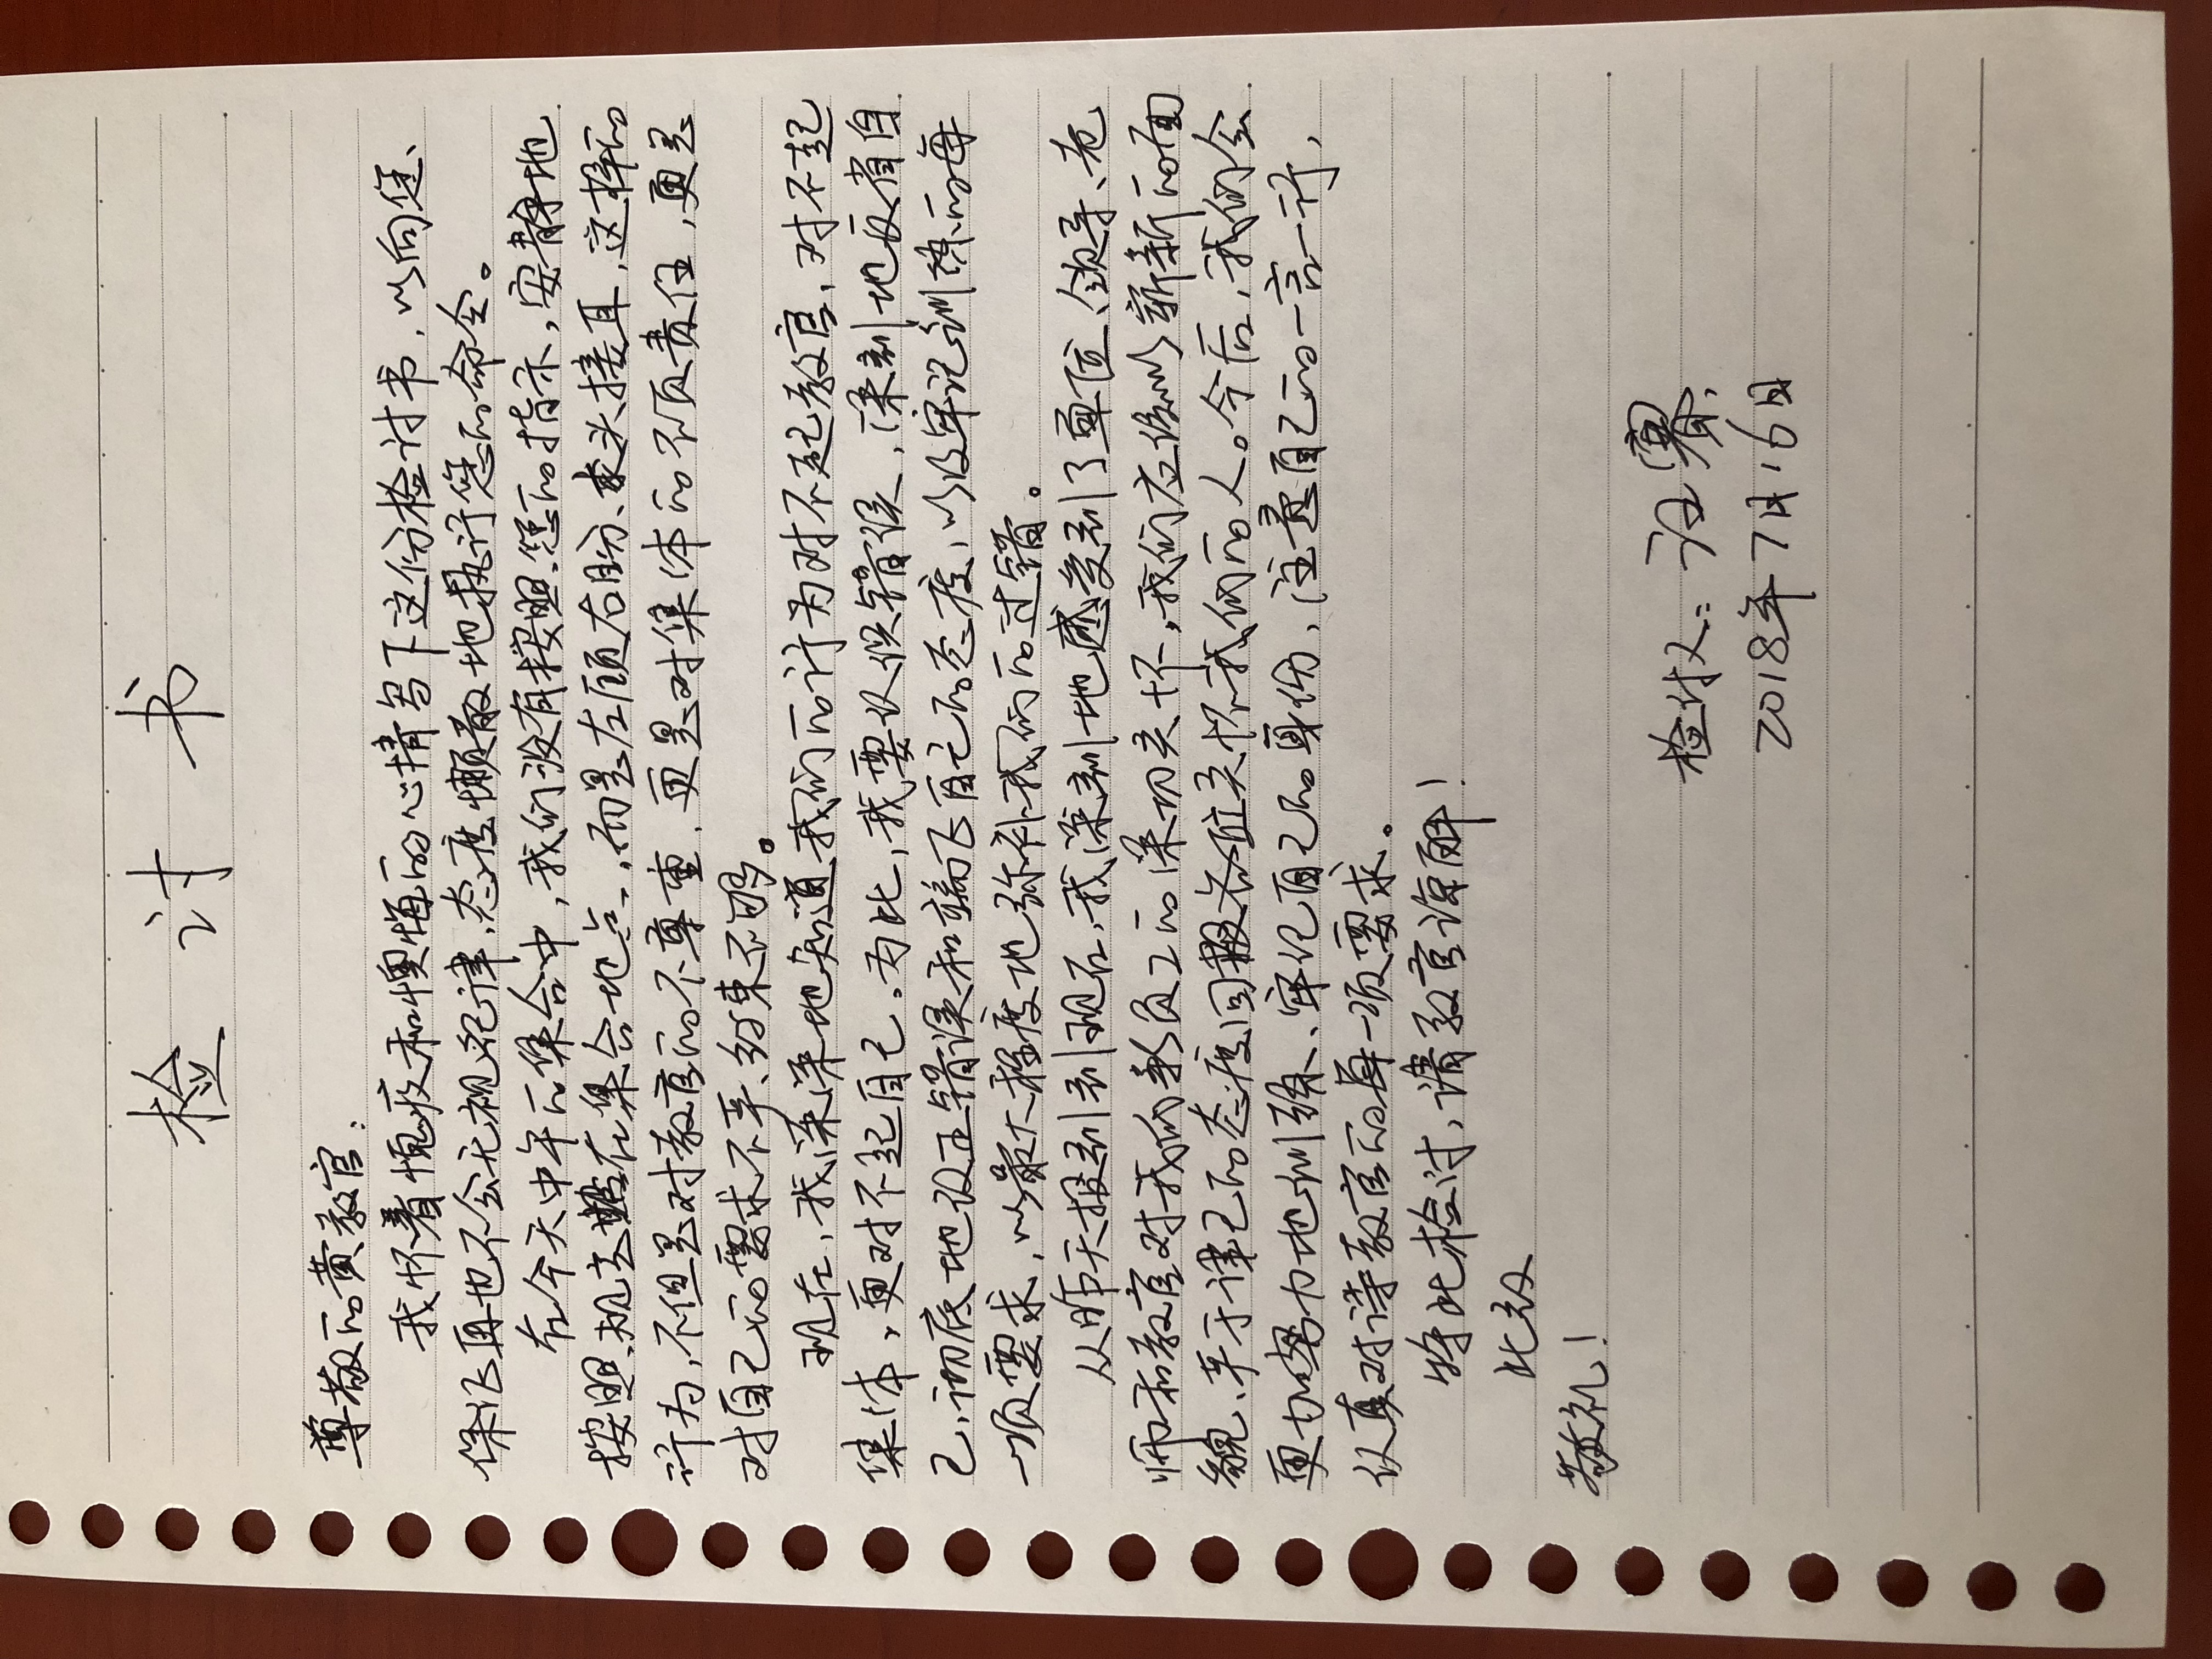 检讨书
尊敬的黄教官：
我怀着愧疚和懊悔的心情写下这份检讨书，以向您
保证再也不会无视纪律，态度懒散地执行您的命令。
在今天中午的集合中，我们没有按照您的指示，安静地
按照规定站在集合地点，而是左顾右盼、交头接耳，这样的
行为，不但是对教官的不尊重，更是对集体的不负责任，更是
对自己的要求不严、约束不够。
现在，我深深地知道我们的行为对不起教官，对不起
集体，更对不起自己。为此，我要认识错误，深刻地反省自
己，彻底地改正错误和端正自己的态度，以及牢记训练的每
一项要求，以最大程度地弥补我们的过错。
从昨天报到到现在，我深刻地感受到了单位、领导、老
师和教官对我们新员工的深切关怀，我们应该以崭新的面
貌、严于律己的态度回报各位关怀我们的人。今后，我们会
更加努力地训练、牢记自己的身份，注意自己的一言一行，
认真对待教官的每一项要求。
特此检讨，请教官谅解！
此致
敬礼！
检讨人：汪赛
2018年7月16日